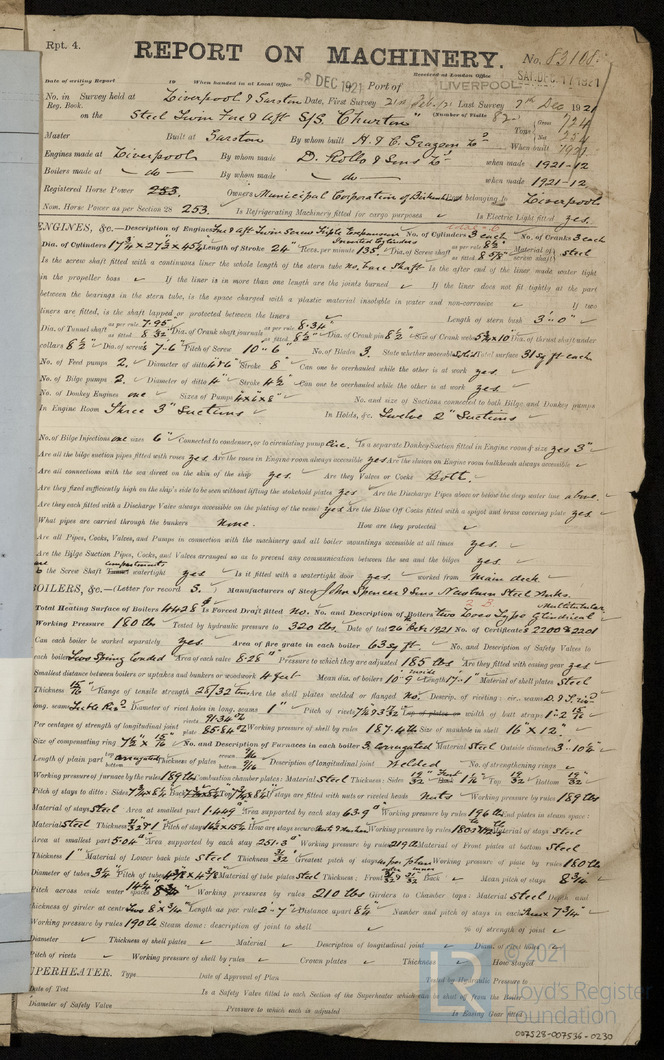 Rpt. 4.
REPORT ON MACHINERY.
No. 83108
Date of writing Report 19 When handed in at Local Office -8 DEC 1921 Port of LIVERPOOL Received at London Office SAT. DEC. 17 1921
No. in Survey held at Liverpool & Garston Date, First Survey 21st Feb /21 Last Survey 7th Dec 1921
Reg. Book. (Number of Visits 82
on the Steel Twin Fore & Aft S/S "Churton"
Tons Gross 724
Net 254
Master Built at Garston By whom built H. & C. Grayson Ld When built 1921
Engines made at Liverpool By whom made D. Rollo & Sons Ld when made 1921-12
Boilers made at do By whom made do when made 1921-12
Registered Horse Power 253. Owners Municipal Corporation of Birkenhead Port belonging to Liverpool
Nom. Horse Power as per Section 28 253. Is Refrigerating Machinery fitted for cargo purposes Is Electric Light fitted yes.
ENGINES, &c.—Description of Engines Fore & Aft Twin Screw Triple Expansion Inverted Cylinders No. of Cylinders 3 each No. of Cranks 3 each
Dia. of Cylinders 17¾" x 27½" x 45¼" Length of Stroke 24" Revs. per minute 135 Dia. of Screw shaft as per rule 8½" as fitted 8⅝" Material of screw shaft steel
Is the screw shaft fitted with a continuous liner the whole length of the stern tube no. Fore Shaft. Is the after end of the liner made water tight
in the propeller boss If the liner is in more than one length are the joints burned If the liner does not fit tightly at the part
between the bearings in the stern tube, is the space charged with a plastic material insoluble in water and non-corrosive If two
liners are fitted, is the shaft lapped or protected between the liners Length of stern bush 3'-0"
Dia. of Tunnel shaft as per rule 7.95" as fitted 8.32" Dia. of Crank shaft journals as per rule 8.34" as fitted 8½" Dia. of Crank pin 8½" Size of Crank webs 5⅜ x 10 Dia. of thrust shaft under
collars 8½" Dia. of screw 7'-6" Pitch of Screw 10'-6" No. of Blades 3. State whether moveable solid Total surface 31 sq ft each
No. of Feed pumps 2, Diameter of ditto 4 & 6" Stroke 8" Can one be overhauled while the other is at work yes.
No. of Bilge pumps 2, Diameter of ditto 4" Stroke 4½" Can one be overhauled while the other is at work yes.
No. of Donkey Engines one Sizes of Pumps 4 x 6 x 8" No. and size of Suctions connected to both Bilge and Donkey pumps
In Engine Room Three 3" Suctions In Holds, &c. Twelve 2" Suctions
No. of Bilge Injections one sizes 6" Connected to condenser, or to circulating pump Circ. Is a separate Donkey Suction fitted in Engine room & size yes 3"
Are all the bilge suction pipes fitted with roses yes. Are the roses in Engine room always accessible yes Are the sluices on Engine room bulkheads always accessible
Are all connections with the sea direct on the skin of the ship yes Are they Valves or Cocks Both.
Are they fixed sufficiently high on the ship's side to be seen without lifting the stokehold plates yes Are the Discharge Pipes above or below the deep water line above.
Are they each fitted with a Discharge Valve always accessible on the plating of the vessel yes Are the Blow Off Cocks fitted with a spigot and brass covering plate yes.
What pipes are carried through the bunkers None. How are they protected
Are all Pipes, Cocks, Valves, and Pumps in connection with the machinery and all boiler mountings accessible at all times yes.
Are the Bilge Suction Pipes, Cocks, and Valves arranged so as to prevent any communication between the sea and the bilges yes.
the Screw Shaft Tunnel compartments watertight yes Is it fitted with a watertight door yes. worked from Main deck.
BOILERS, &c.—(Letter for record S.) Manufacturers of Steel John Spencer & Sons Newburn Steel Works.
Total Heating Surface of Boilers 4428 Is Forced Draft fitted No. No. and Description of Boilers two Multitubular Cylindrical
Working Pressure 180 lbs Tested by hydraulic pressure to 320 lbs Date of test 26 Oct 1921 No. of Certificate 2200 & 2201
Can each boiler be worked separately yes. Area of fire grate in each boiler 63 sq ft No. and Description of Safety Valves to
each boiler Two Spring loaded Area of each valve 8.28" Pressure to which they are adjusted 185 lbs Are they fitted with easing gear yes
Smallest distance between boilers or uptakes and bunkers or woodwork 4 feet Mean dia. of boilers 10'-9" Length 17'-1" Material of shell plates Steel
Thickness 15/16 Range of tensile strength 28/32 tons Are the shell plates welded or flanged No. Descrip. of riveting: cir. seams
long. seams Treble Riv Diameter of rivet holes in long. seams 1" Pitch of rivets Lap of plates or width of butt straps
Per centages of strength of longitudinal joint rivets 91.34% plate 85.84% Working pressure of shell by rules 187.4 lbs Size of manhole in shell 16" x 12"
Size of compensating ring 7½" x 15/16 No. and Description of Furnaces in each boiler 3 corrugated Material steel Outside diameter 3'-10¼"
Length of plain part top bottom corrugated Thickness of plates crown bottom 9/16 Description of longitudinal joint Welded No. of strengthening rings
Working pressure of furnace by the rules 189 lbs Combustion chamber plates: Material Steel Thickness: Sides Back Top Bottom
Pitch of stays to ditto: Sides Back Top If stays are fitted with nuts or riveted heads Nuts Working pressure by rules 189 lbs
Material of stays Steel Area at smallest part 1.449" Area supported by each stay 63.9" Working pressure by rules 196 lbs End plates in steam space:
Material Steel Thickness Pitch of stays How are stays secured Working pressure by rules Material of stays steel
Area at smallest part 5.04" Area supported by each stay 251.3" Working pressure by rules 219 lbs Material of Front plates at bottom Steel
Thickness 1" Material of Lower back plate Steel Thickness Greatest pitch of stays as per plan Working pressure of plate by rules 180 lbs
Diameter of tubes 3¼" Pitch of tubes Material of tube plates steel Thickness: Front Back Mean pitch of stays 8¾"
Pitch across wide water spaces 14¼ Working pressures by rules 210 lbs Girders to Chamber tops: Material Steel Depth and
thickness of girder at centre Two 8" x ¾" Length as per rule 2'-7" Distance apart 8¼" Number and pitch of stays in each Three 7¾"
Working pressure by rules 190 lb Steam dome: description of joint to shell % of strength of joint
Diameter Thickness of shell plates Material Description of longitudinal joint Diam. of rivet holes
Pitch of rivets Working pressure of shell by rules Crown plates Thickness How stayed
UPERHEATER. Type Date of Approval of Plan Tested by Hydraulic Pressure to
Date of Test Is a Safety Valve fitted to each Section of the Superheater which can be shut off from the Boiler
Diameter of Safety Valve Pressure to which each is adjusted Is Easing Gear fitted
© 2021
Lloyd's Register
Foundation
007528-007536-0230